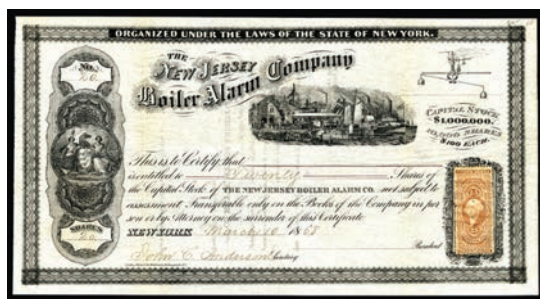 ORGANIZED UNDER THE LAWS OF THE STATE OF NEW YORK.
No.
20
THE
NEW JERSEY
Boiler Alarm Company
CAPITAL STOCK
$1,000,000.
10,000 SHARES
$100 EACH.
This is to Certify that
is entitled to Twenty Shares of
the Capital Stock of THE NEW JERSEY BOILER ALARM CO. not subject to
assessment, Transferable only on the Books of the Company in per
son or by Attorney on the surrender of this Certificate
SHARES
20
NEW YORK March 10 1868
President
John C. Anderson Secretary